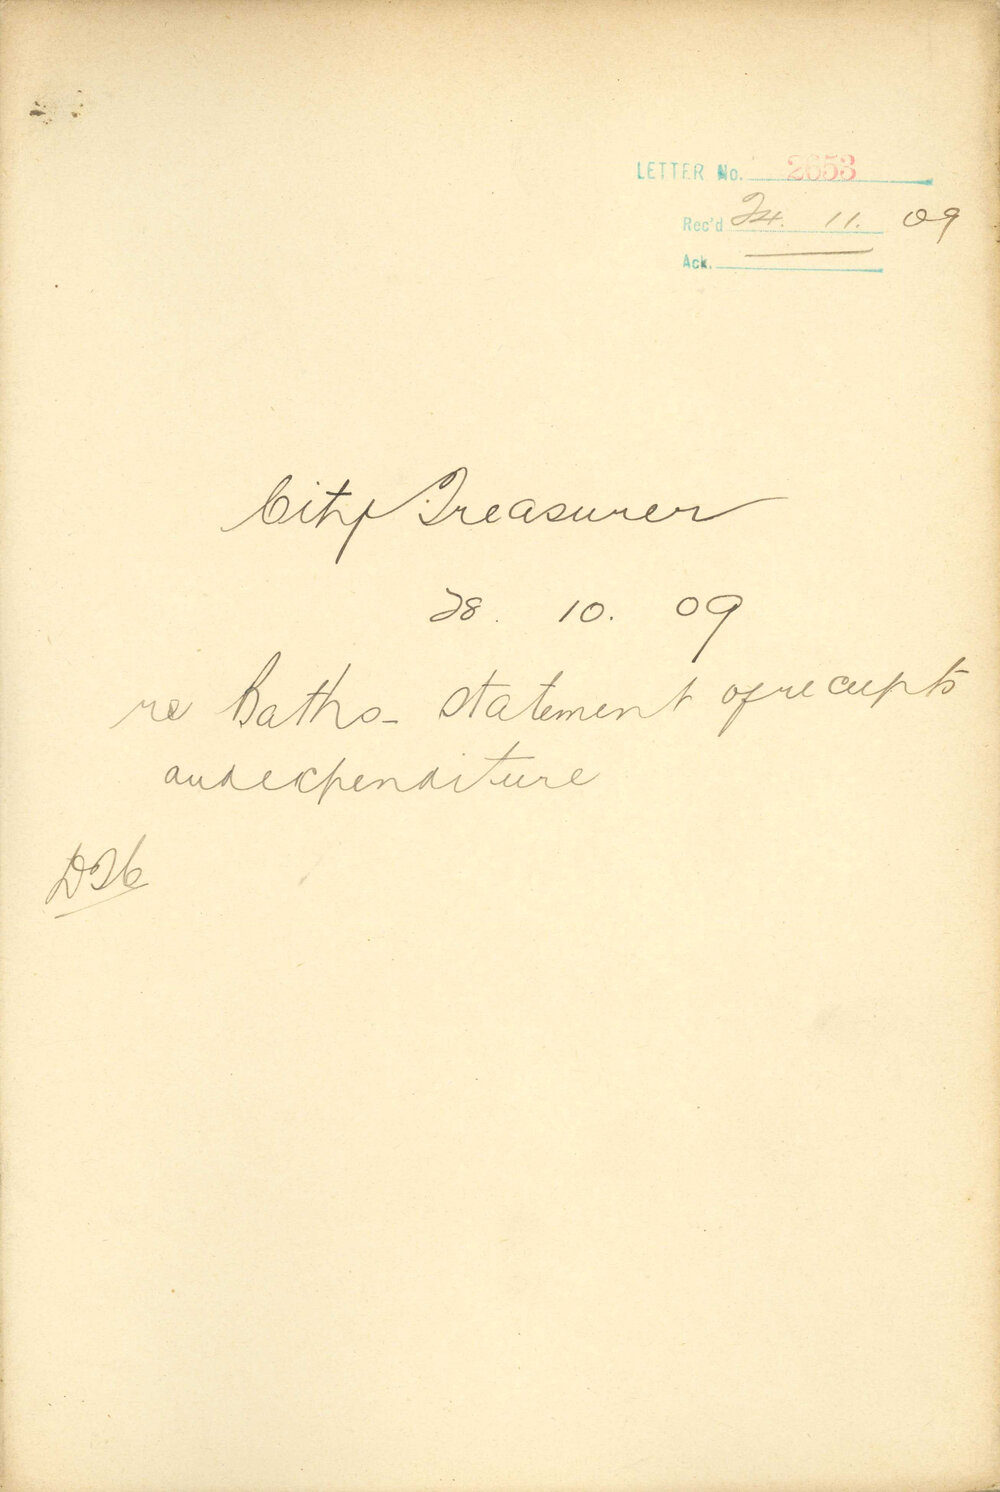 LETTER No. 2653
Rec'd 24. 11. 09
Ack.
City Treasurer
28. 10. 09
re Baths - statement of receipts
and expenditure